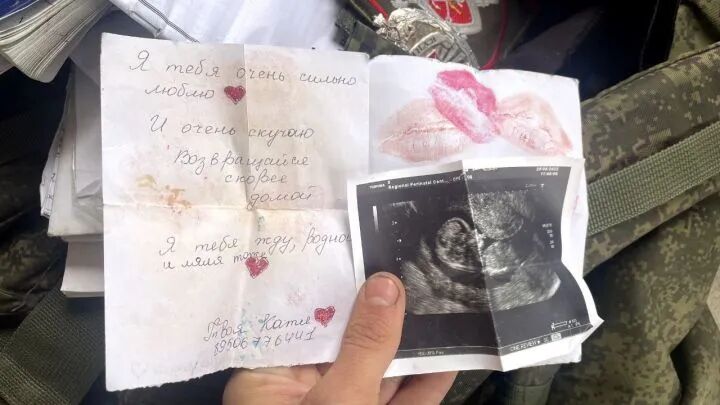 Я тебя очень сильно
люблю
И очень скучаю
Возвращайся
скорее
домой
Я тебя жду, родной
и ляля тоже
Твоя Катя
TOSHIBA Regional Perinatal Cent